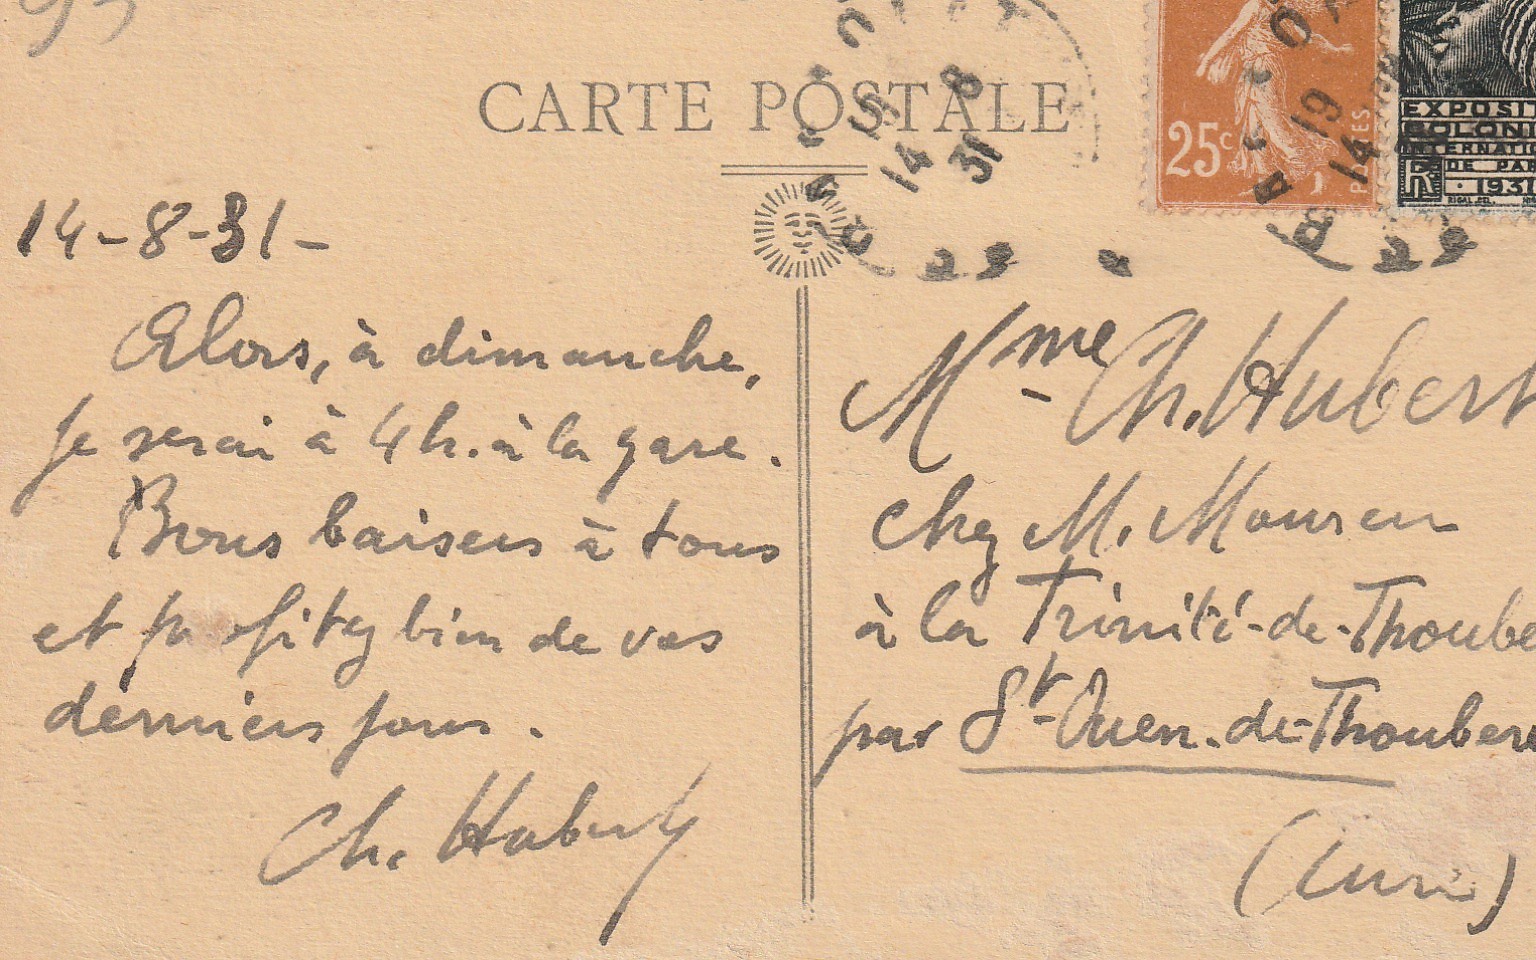 CARTE POSTALE
25c
POSTES
EXPOSI
COLONI
INTERNATIO
DE PAR
1931
19
14
15
14 8
31
14-8-31-
Alors, à dimanche,
je serai à 4h. à la gare.
Bons baisers à tous
et profitez bien de vos
derniers jours.
Ch. Hubert
Mme Ch. Hubert
chez M.
à la Trinité-de-Thoube
par St-Ouen-de-Thoubere
(Eure)